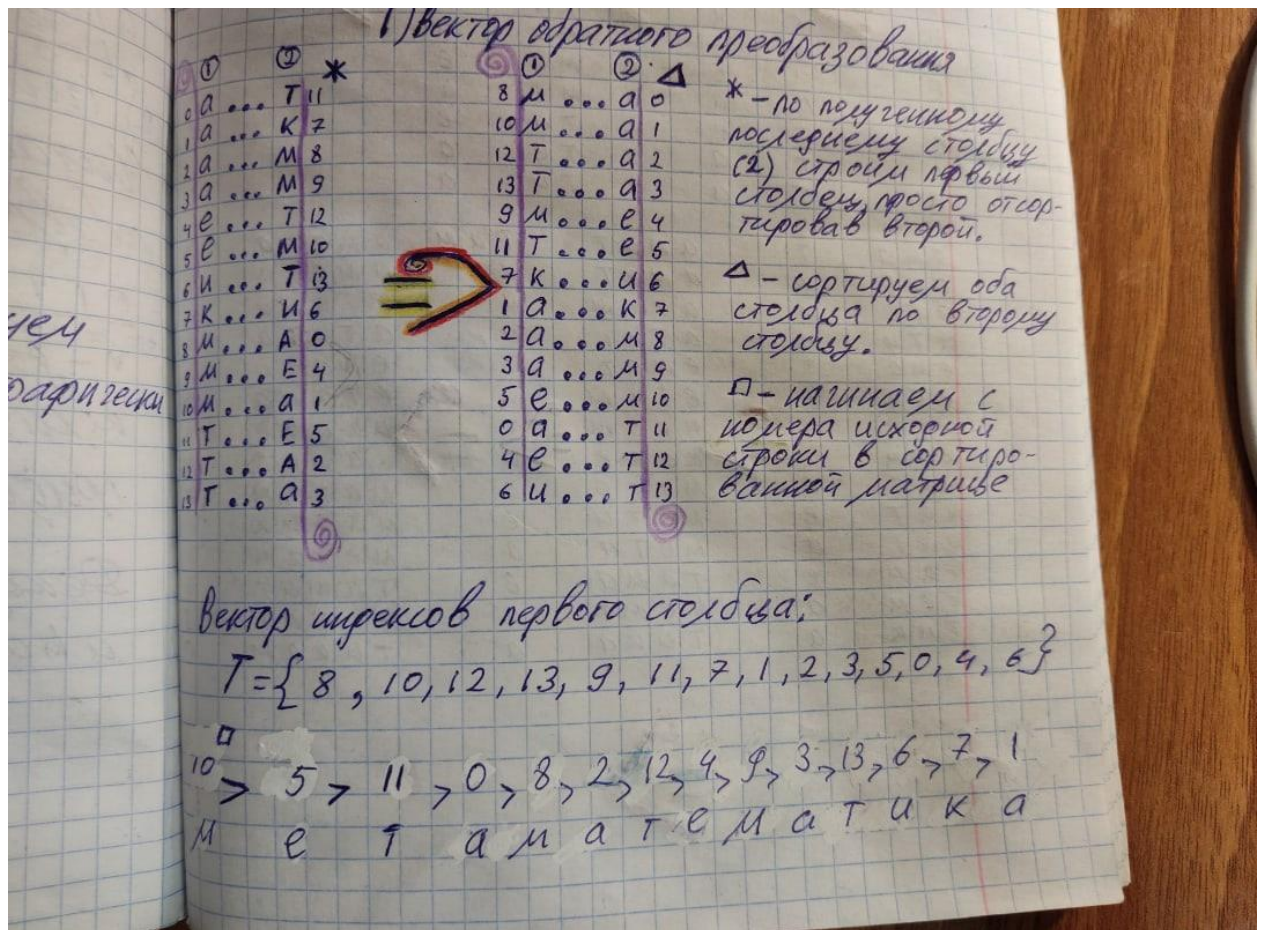 1) Вектор обратного преобразования
① ② *
0 а ... Т 11
1 а ... К 7
2 а ... М 8
3 а ... М 9
4 е ... Т 12
5 е ... М 10
6 и ... Т 13
7 к ... И 6
8 м ... А 0
9 м ... Е 4
10 м ... а 1
11 Т ... Е 5
12 Т ... А 2
13 Т ... а 3
① ② △
8 м ... а 0
10 м ... а 1
12 Т ... а 2
13 Т ... а 3
9 м ... е 4
11 Т ... е 5
7 к ... и 6
1 а ... к 7
2 а ... м 8
3 а ... м 9
5 е ... м 10
0 а ... т 11
4 е ... т 12
6 и ... т 13
* – по полученному
последнему столбцу
(2) строим первый
столбец, просто отсор-
тировав второй.
△ – сортируем оба
столбца по второму
столбцу.
□ – начинаем с
номера исходной
строки в сортиро-
ванной матрице
Вектор индексов первого столбца:
T={8, 10, 12, 13, 9, 11, 7, 1, 2, 3, 5, 0, 4, 6}
□
10 > 5 > 11 > 0 > 8 > 2 > 12 > 4 > 9 > 3 > 13 > 6 > 7 > 1
м е т а м а т е м а т и к а